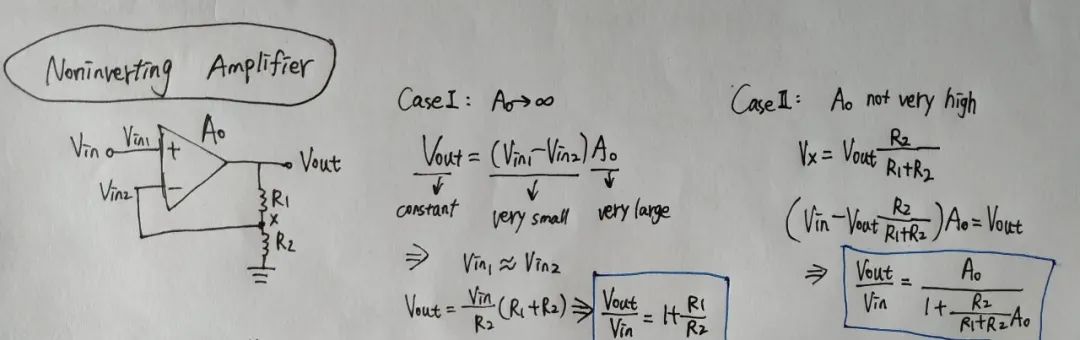 Noninverting Amplifier
Vin Vin1 + A0 Vout
Vin2 −
R1
X
R2
Case I: A0→∞
Vout = (Vin1−Vin2)A0
constant very small very large
⇒ Vin1 ≈ Vin2
Vout = Vin/R2 (R1+R2) ⇒ Vout/Vin = 1+R1/R2
Case II: A0 not very high
Vx = Vout R2/(R1+R2)
(Vin−Vout R2/(R1+R2))A0 = Vout
⇒ Vout/Vin = A0/(1+R2/(R1+R2) A0)